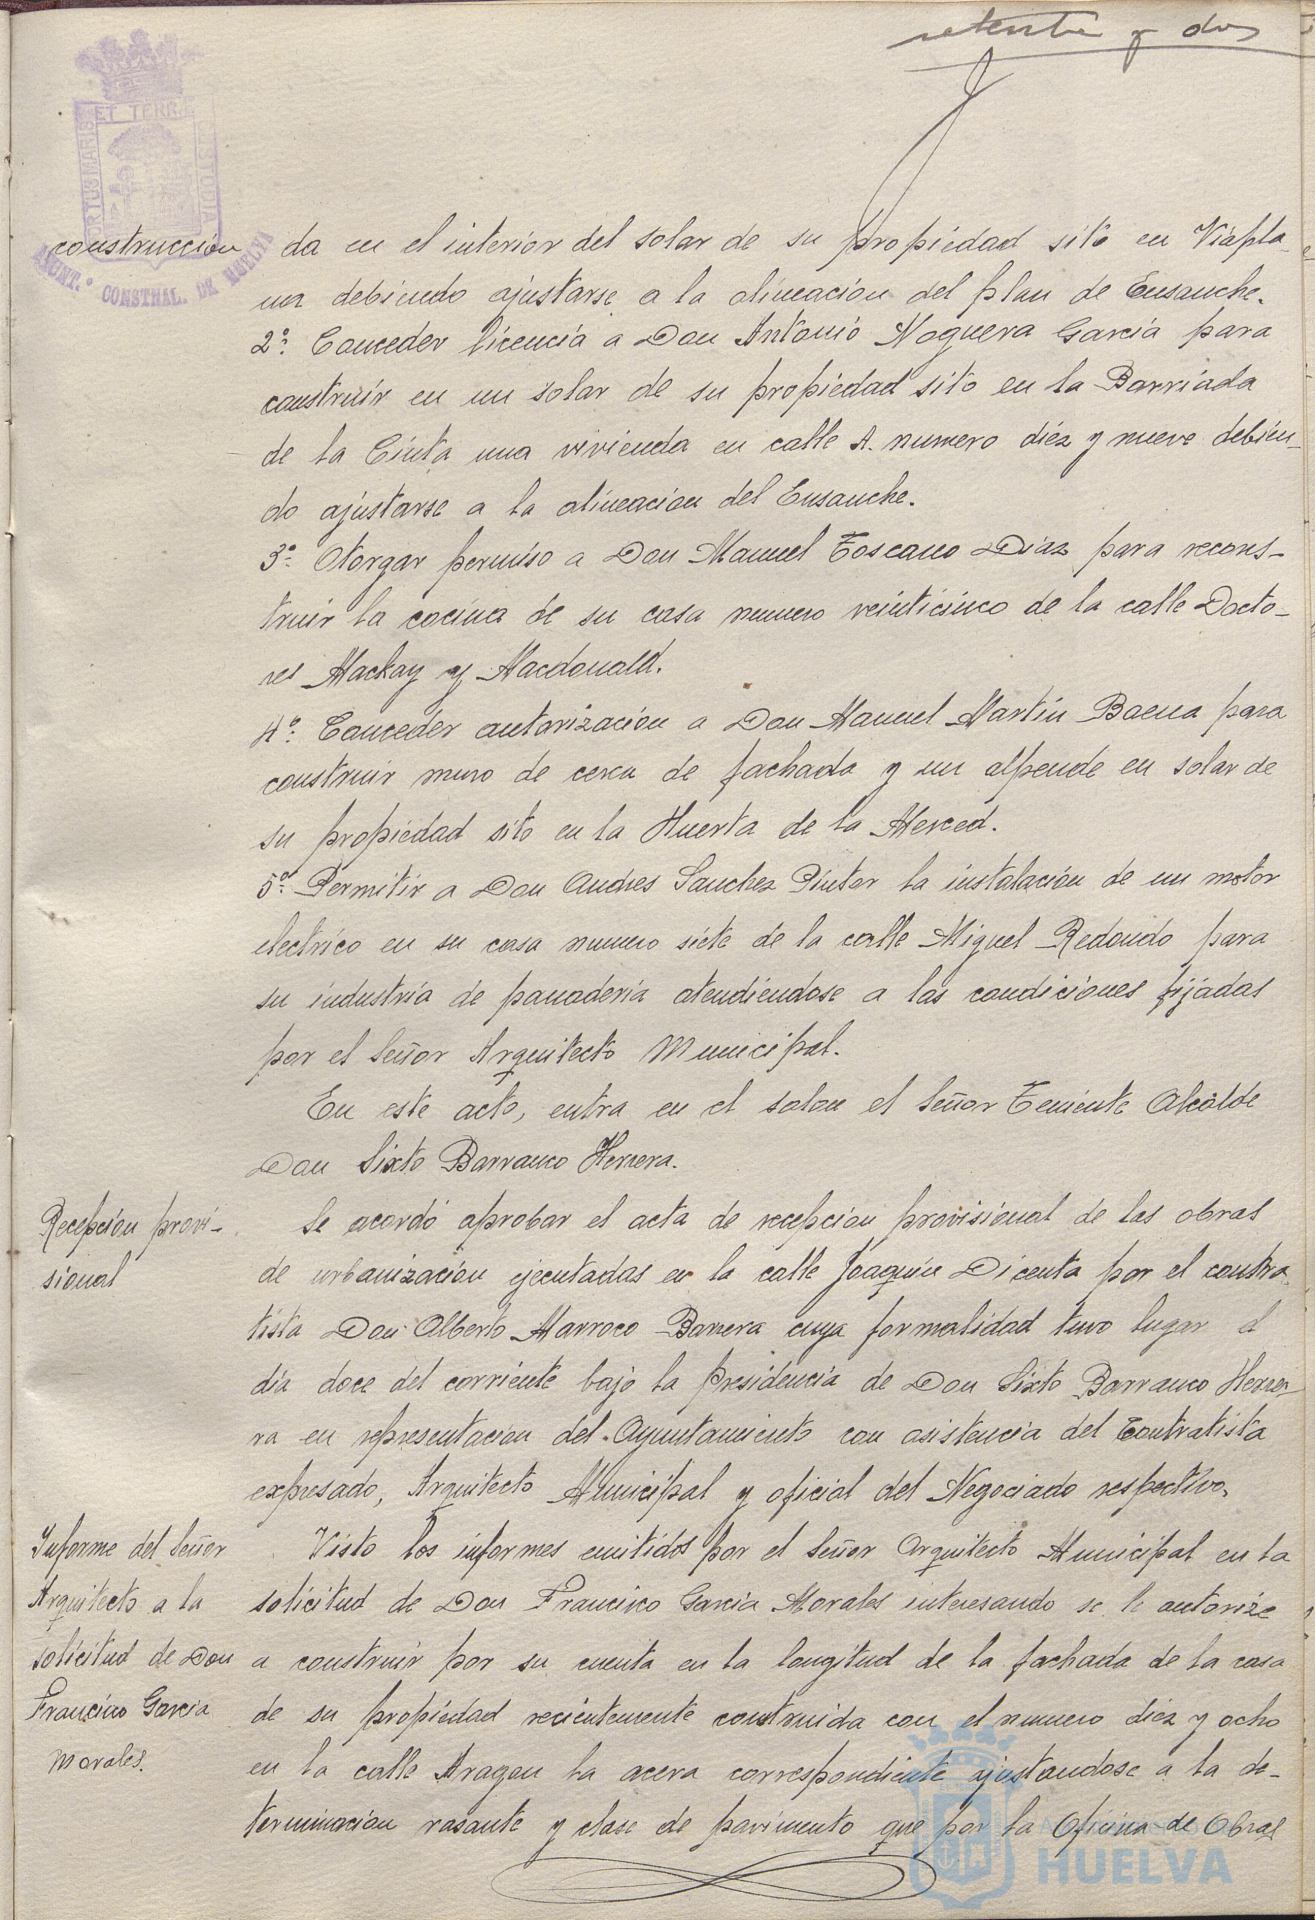 setenta y dos
PORTUS MARIS ET TERRÆ CUSTODIA
AYUNT.º CONSTNAL. DE HUELVA
construccion
da en el interior del solar de su propiedad sito en Viapla-
na debiendo ajustarse a la alineacion del plan de Ensanche.
2º: Conceder licencia a Don Antonio Noguera Garcia para
construir en un solar de su propiedad sito en la Barriada
de la Cinta una vivienda en calle A. numero diez y nueve debien-
do ajustarse a la alineacion del Ensanche.
3º: Otorgar permiso a Don Manuel Toscano Diaz para recons-
truir la cocina de su casa numero veinticinco de la calle Docto-
res Mackay y Macdonald.
4º: Conceder autorizacion a Don Manuel Martin Baena para
construir muro de cerca de fachada y un alpende en solar de
su propiedad sito en la Huerta de la Merced.
5º: Permitir a Don Andres Sanchez Pinter la instalación de un motor
electrico en su casa numero siete de la calle Miguel Redondo para
su industria de panaderia atendiendose a las condiciones fijadas
por el Señor Arquitecto Municipal.
En este acto, entra en el salon el Señor Teniente Alcalde
Don Sixto Barranco Herrera.
Recepcion provi-
sional
Se acordó aprobar el acta de recepcion provisional de las obras
de urbanizacion ejecutadas en la calle Joaquin Dicenta por el contra-
tista Don Alberto Marroco Barrera cuya formalidad tuvo lugar el
dia doce del corriente bajo la presidencia de Don Sixto Barranco Herre-
ra en representacion del Ayuntamiento con asistencia del Contratista
expresado, Arquitecto Municipal y oficial del Negociado respectivo.
Informe del Señor
Arquitecto a la
solicitud de Don
Francisco Garcia
Morales.
Visto los informes emitidos por el Señor Arquitecto Municipal en la
solicitud de Don Francisco Garcia Morales interesando se le autorize
a construir por su cuenta en la longitud de la fachada de la casa
de su propiedad recientemente construida con el numero diez y ocho
en la calle Aragon la acera correspondiente ajustandose a la de-
terminacion rasante y clase de pavimento que por la Oficina de Obras
HUELVA